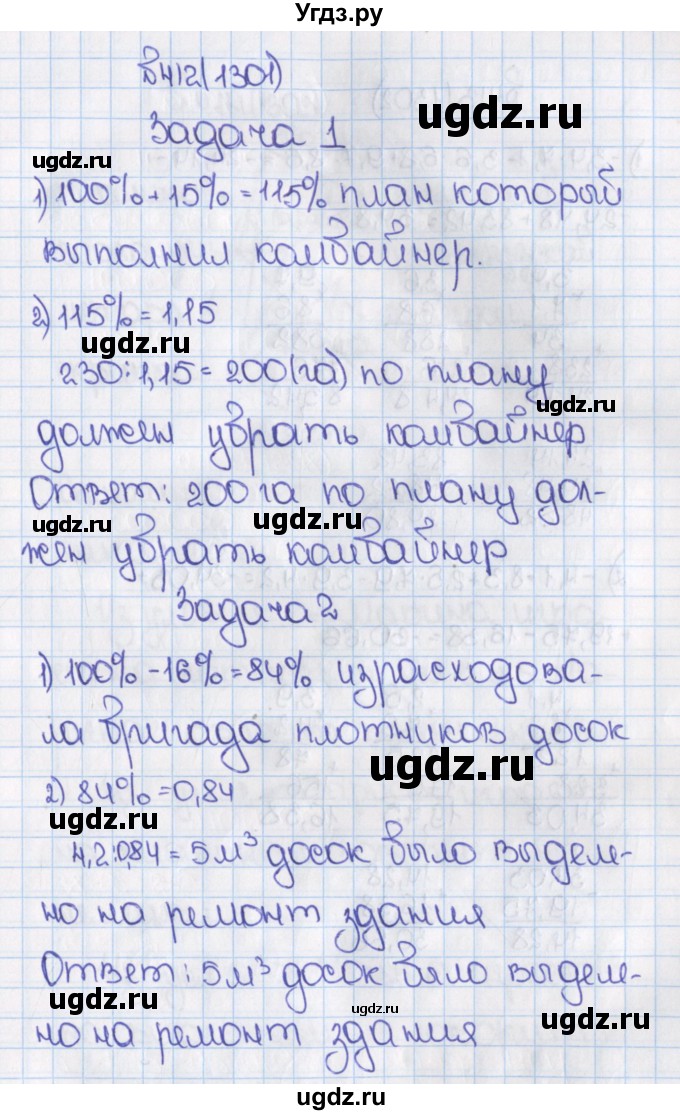 Угдз.ру
№412(1301)
ugdz.ru
Задача 1
ugdz.ru
1) 100% + 15% = 115% план который
выполнил комбайнер.
2) 115% = 1,15
ugdz.ru
230:1,15 = 200(га) по плану
ugdz.ru
должен убрать комбайнер
Ответ: 200 га по плану дол-
ugdz.ru ugdz.ru
жен убрать комбайнер
Задача 2
1) 100% - 16% = 84% израсходова-
ла бригада плотников досок
ugdz.ru
2) 84% = 0,84
ugdz.ru
4,2:0,84 = 5м³ досок было выделе-
но на ремонт здания
Ответ: 5м³ досок было выделе-
ugdz.ru ugdz.ru ugdz.ru
но на ремонт здания
ugdz.ru